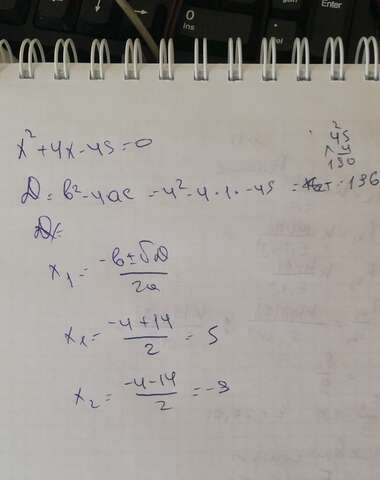 0
ins
Enter
x²+4x-45=0
45
4
180
D = b²-4ac = 4²-4·1·-45 = 196
D=
x₁ = -b±√D / 2a
x₁ = -4+14 / 2 = 5
x₂ = -4-14 / 2 = -9